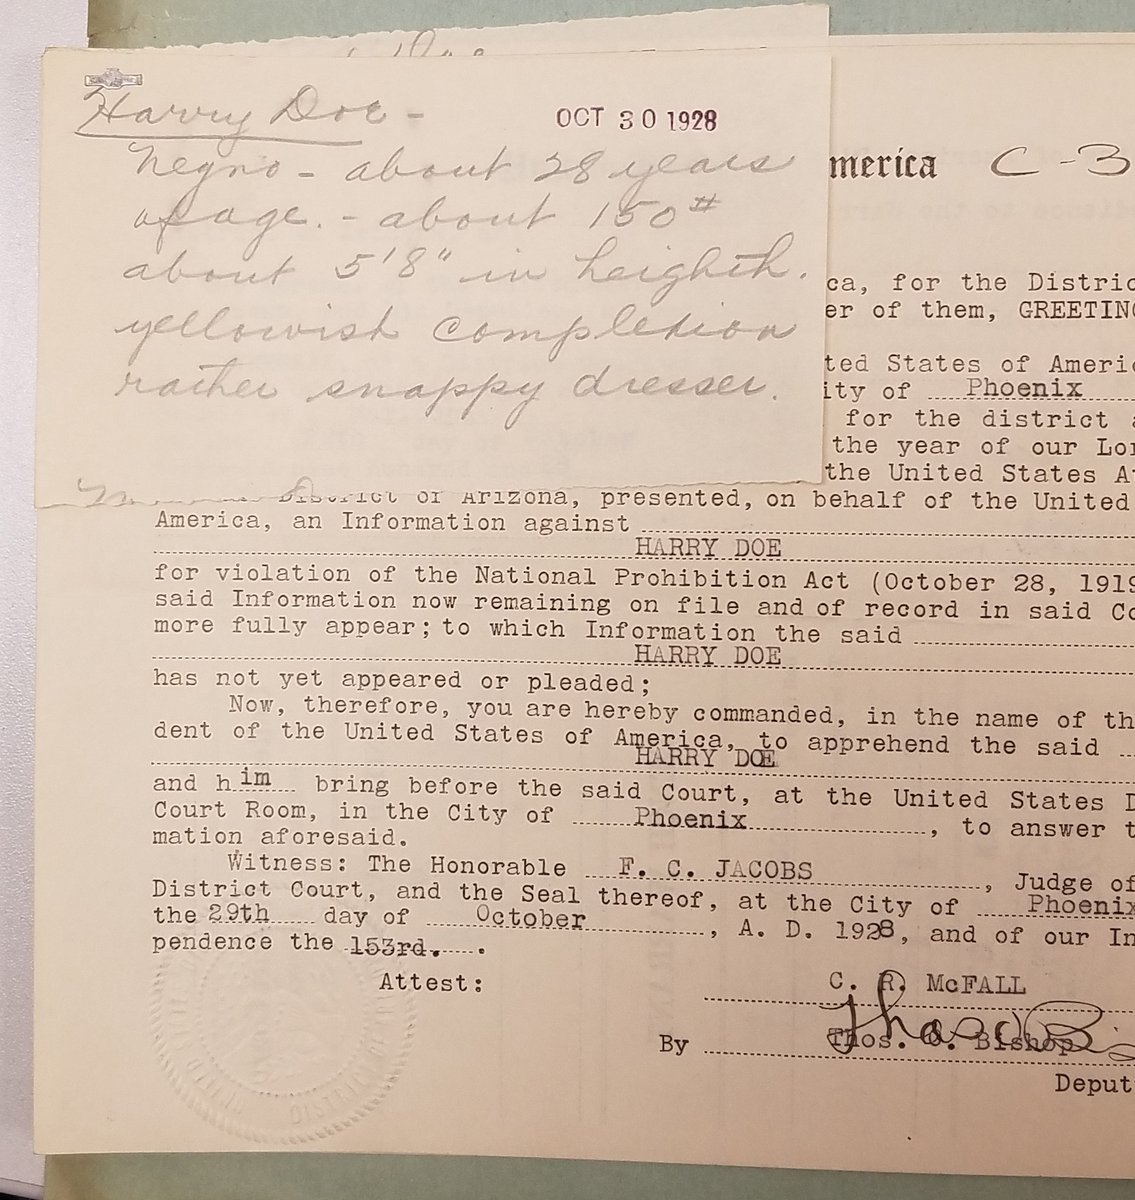 Harry Doe -
OCT 30 1928
Negro - about 28 years
of age. - about 150#
about 5'8" in heighth.
yellowish complexion
rather snappy dresser.
merica C-3
ca, for the Distric
er of them, GREETING
ted States of Americ
ity of Phoenix
for the district a
the year of our Lor
the United States A
District of Arizona, presented, on behalf of the United
America, an Information against
HARRY DOE
for violation of the National Prohibition Act (October 28, 1919
said Information now remaining on file and of record in said Co
more fully appear; to which Information the said
HARRY DOE
has not yet appeared or pleaded;
Now, therefore, you are hereby commanded, in the name of th
dent of the United States of America, to apprehend the said
HARRY DOE
and him bring before the said Court, at the United States D
Court Room, in the City of Phoenix, to answer t
mation aforesaid.
Witness: The Honorable F. C. JACOBS, Judge of
District Court, and the Seal thereof, at the City of Phoenix
the 29th day of October, A. D. 1928, and of our In
pendence the 153rd.
Attest:
C. R. McFALL
By Thos. O. Bishop
Deput